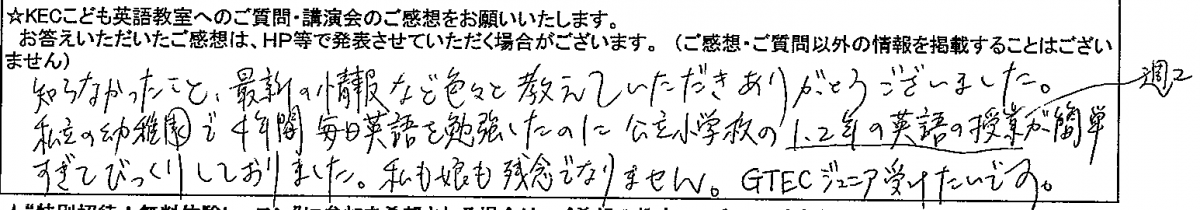 ☆KECこども英語教室へのご質問・講演会のご感想をお願いいたします。
お答えいただいたご感想は、HP等で発表させていただく場合がございます。（ご感想・ご質問以外の情報を掲載することはござい
ません）
知らなかったこと、最新の情報など色々と教えていただきありがとうございました。
週2
私立の幼稚園で4年間毎日英語を勉強したのに公立小学校の1.2年の英語の授業が簡単
すぎてびっくりしておりました。私も娘も残念でなりません。GTECジュニア受けたいです。